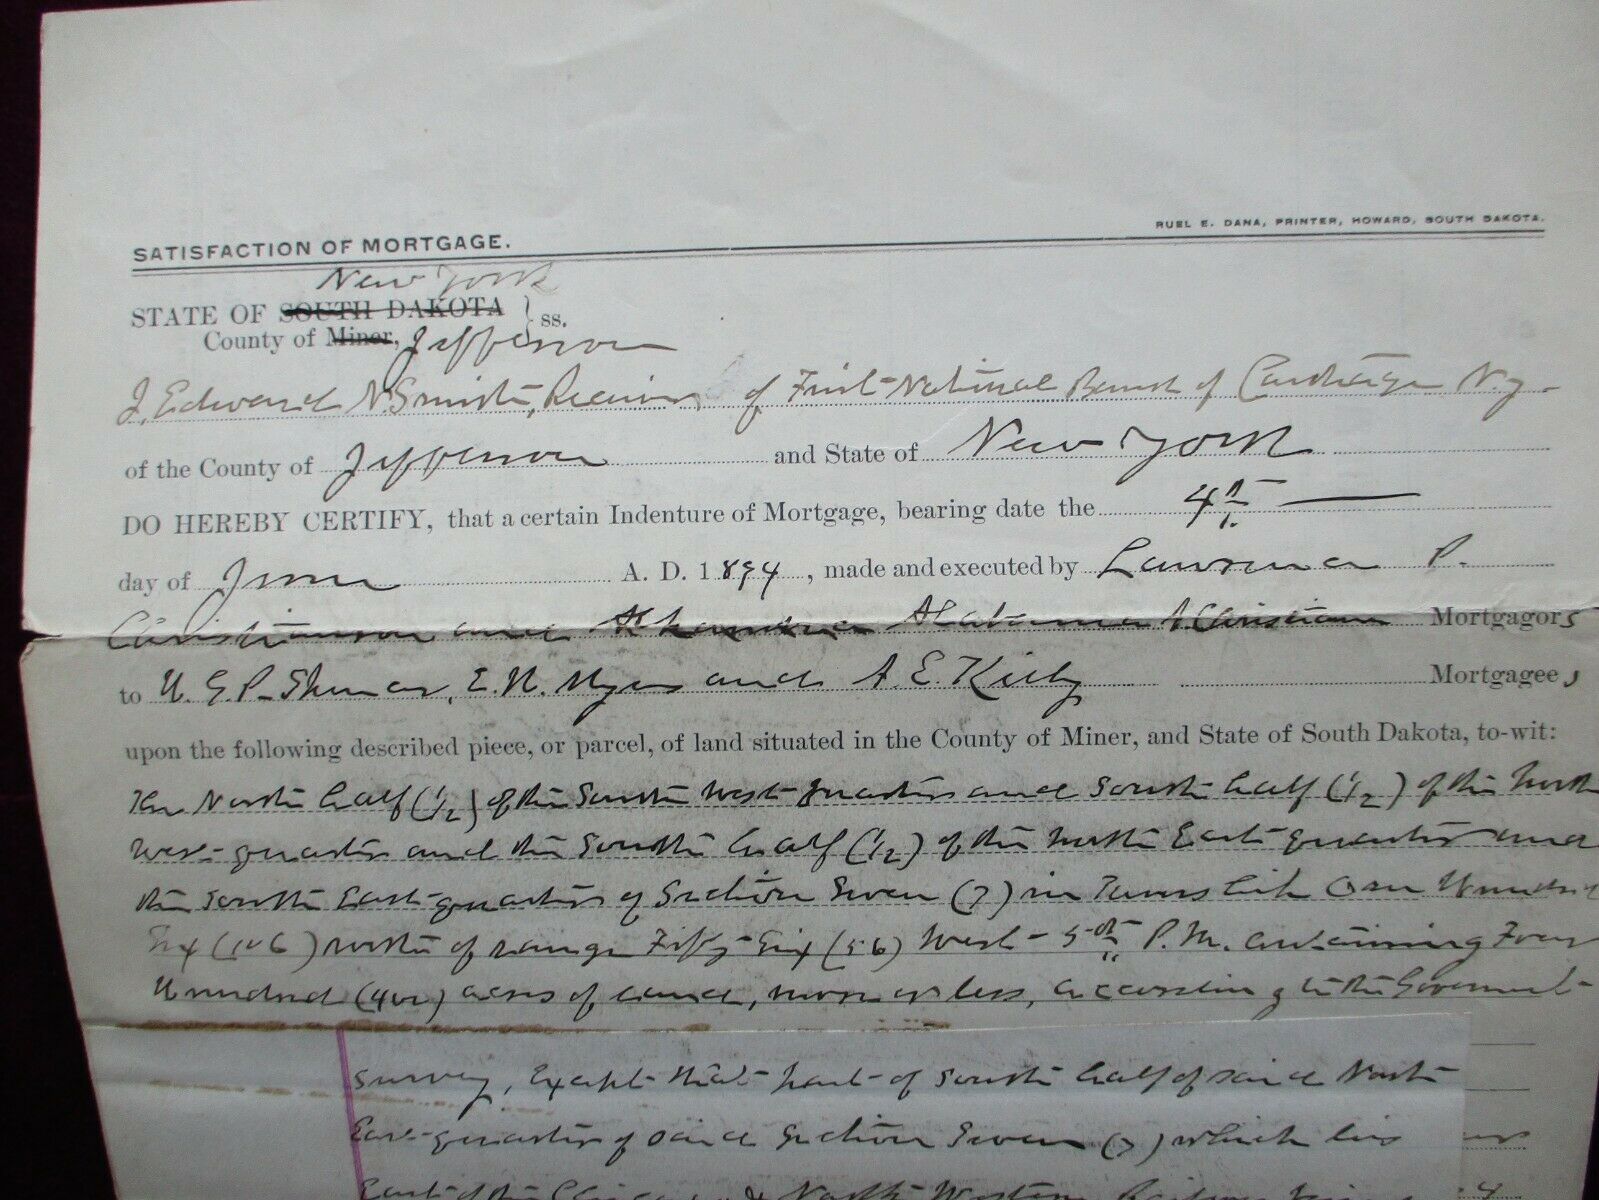 RUEL E. DANA, PRINTER, HOWARD, SOUTH DAKOTA.
SATISFACTION OF MORTGAGE.
New York
STATE OF SOUTH DAKOTA } ss.
County of Miner, Jefferson
I, Edward N Smith, Receiver of First National Bank of Carthage N.Y.
of the County of Jefferson and State of New York
DO HEREBY CERTIFY, that a certain Indenture of Mortgage, bearing date the 4th
day of June A. D. 1894, made and executed by Lawrence P.
Christianson and Alabama A Christianson Mortgagors
to U. G. P. Sherar, E. H. Myers and A. E. Kilby Mortgagees
upon the following described piece, or parcel, of land situated in the County of Miner, and State of South Dakota, to-wit:
The North half (1/2) of the South West quarter and South half (1/2) of the North
West quarter and the South half (1/2) of the North East quarter and
the South East quarter of Section Seven (7) in Township One Hundred
Six (106) north of range Fifty-Six (56) West 5th P.M. containing Four
Hundred (400) acres of land, more or less, according to the Government
survey, Except that part of South half of said North
East quarter of said Section Seven (7) which lies
East of the Chicago & North Western Railway